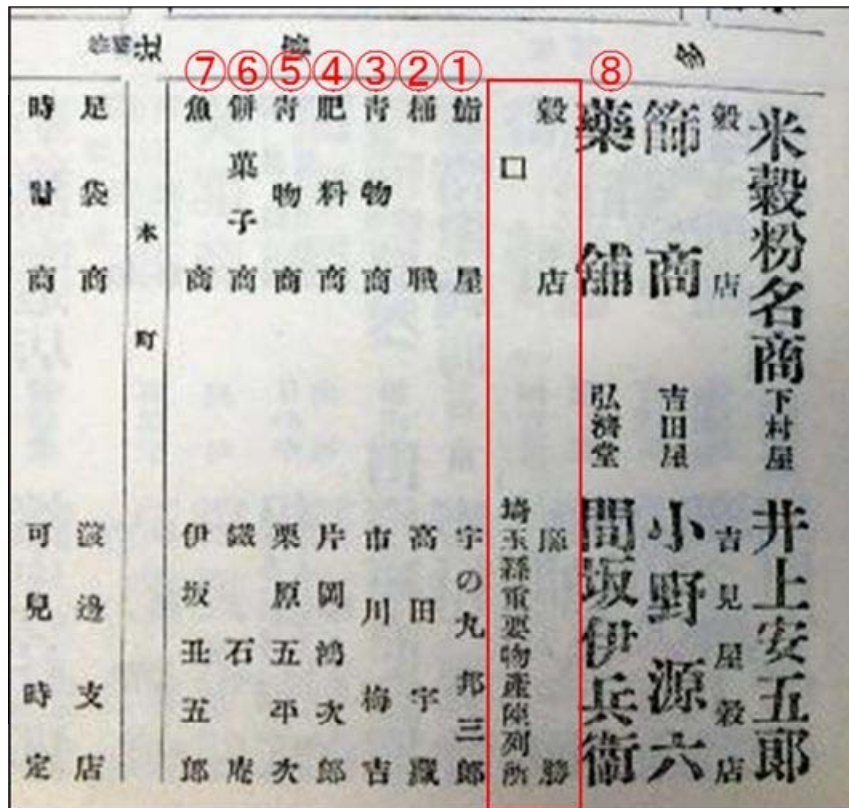 多
米穀粉名商 下村屋 井上安五郎
穀店 吉見屋穀店
飾商 吉田屋 小野源六
⑧ 藥舖 弘濟堂 間坂伊兵衞
穀店 勝
口 埼玉縣重要物產陳列所
① 鮨屋 宇の丸邦三郎
② 桶職 高田宇藏
③ 青物商 市川梅吉
④ 肥料商 片岡鴻次郎
⑤ 青物商 栗原五平次
⑥ 餅菓子商 織石庵
⑦ 魚商 伊坂丑五郎
本町
足袋商 渡邊支店
時計商 可兒時定